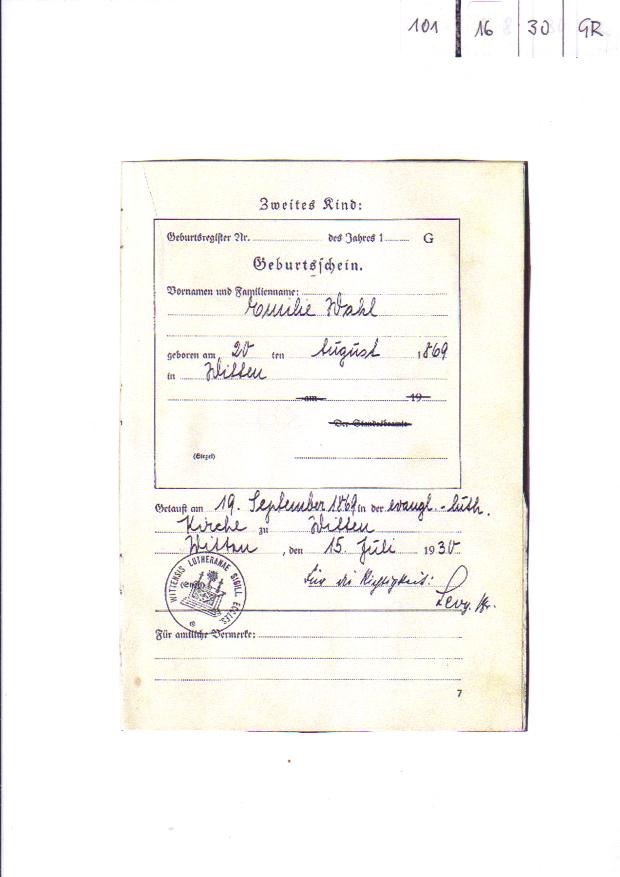 101 16 30 GR
Zweites Kind:
Geburtsregister Nr. des Jahres 1 G
Geburtsschein.
Vornamen und Familienname:
Emilie Wahl
geboren am 20 ten August 1869
in Witten
am 19
Der Standesbeamte
(Siegel)
Getauft am 19. September 1869 in der evangl.-luth.
Kirche zu Witten
Witten, den 15. Juli 1930
WITTENSIS LUTHERANAE SIGILL ECCLES.
(Siegel)
Für die Richtigkeit:
Für amtliche Vermerke:
7